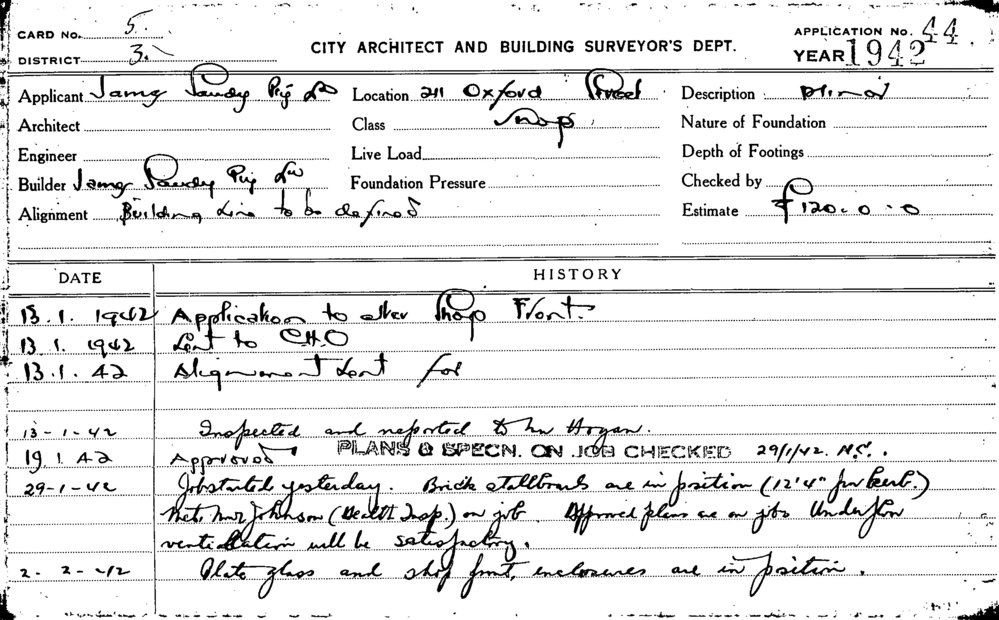 CARD No. 5.
DISTRICT 3.
CITY ARCHITECT AND BUILDING SURVEYOR'S DEPT.
APPLICATION No. 44
YEAR 1942
Applicant Pty Ld Location 211 Oxford Street Description
Architect Class Shop Nature of Foundation
Engineer Live Load Depth of Footings
Builder Pty Ld Foundation Pressure Checked by
Alignment Building Line to be defined Estimate £120.0.0
DATE HISTORY
13.1.1942 Application to alter Shop Front.
13.1.1942 Sent to C.H.O
13.1.42 Alignment Sent for
13-1-42 Inspected and reported to Mr Hogan.
19.1.42 Approved PLANS & SPECN. ON JOB CHECKED 29/1/42.
29-1-42 Job started yesterday. Brick stallboards are in position (12'4" from kerb.)
Met Mr Johnson (Health Insp.) on job. Approved plans are on job. Underfloor
ventilation will be satisfactory.
2-2-42 Plate glass and shop front, enclosures are in position.